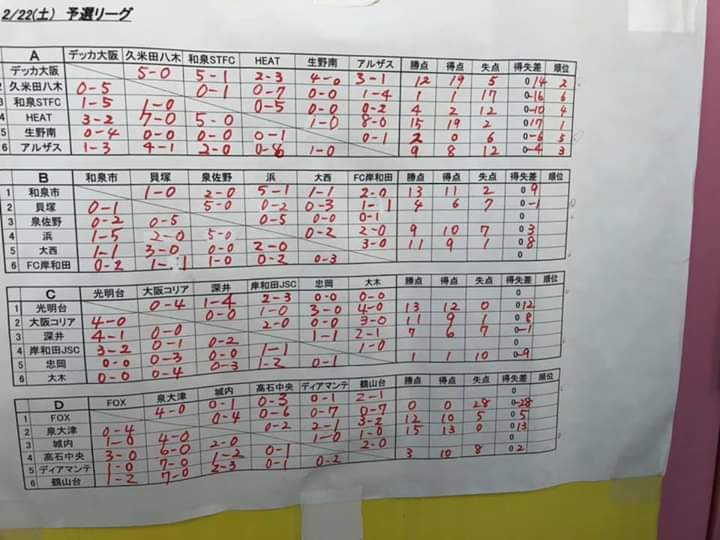 2/22(土) 予選リーグ
A デッカ大阪 久米田八木 和泉STFC HEAT 生野南 アルザス 勝点 得点 失点 得失差 順位
デッカ大阪 5-0 5-1 2-3 4-0 3-1 12 19 5 0 14 2
2 久米田八木 0-5 0-1 0-7 0-0 1-4 1 1 17 0 -16 6
3 和泉STFC 1-5 1-0 0-5 0-0 0-2 4 2 12 0 -10 4
4 HEAT 3-2 7-0 5-0 1-0 8-0 15 19 2 0 17 1
5 生野南 0-4 0-0 0-0 0-1 0-1 2 0 6 0 -6 5
6 アルザス 1-3 4-1 2-0 0-8 1-0 9 8 12 0 -4 3
B 和泉市 貝塚 泉佐野 浜 大西 FC岸和田 勝点 得点 失点 得失差 順位
1 和泉市 1-0 2-0 5-1 1-1 2-0 13 11 2 0 9
2 貝塚 0-1 5-0 0-2 0-3 1-1 4 6 7 0 -1
3 泉佐野 0-2 0-5 0-5 0-0 0-1 0
4 浜 1-5 2-0 5-0 0-2 2-0 9 10 7 0 3
5 大西 1-1 3-0 0-0 2-0 3-0 11 9 1 0 8
6 FC岸和田 0-2 1-1 1-0 0-2 0-3 0
C 光明台 大阪コリア 深井 岸和田JSC 忠岡 大木 勝点 得点 失点 得失差 順位
1 光明台 0-4 1-4 2-3 0-0 0-0
2 大阪コリア 4-0 0-0 1-0 3-0 4-0 13 12 0 0 12
3 深井 4-1 0-0 2-0 0-0 3-0 11 9 1 0 8
4 岸和田JSC 3-2 0-1 0-2 1-1 2-1 7 6 7 0 -1
5 忠岡 0-0 0-3 0-0 1-1 1-0 0
6 大木 0-0 0-4 0-3 1-2 0-1 1 1 10 0 -9
D FOX 泉大津 城内 高石中央 ディアマンテ 鶴山台 勝点 得点 失点 得失差 順位
1 FOX 4-0 0-1 0-3 0-1 2-1
2 泉大津 0-4 0-4 0-6 0-7 0-7 0 0 28 0 -28
3 城内 1-0 4-0 0-2 2-1 3-2 12 10 5 0 5
4 高石中央 3-0 6-0 2-0 1-0 1-0 15 13 0 0 13
5 ディアマンテ 1-0 7-0 1-2 0-1 2-0 0
6 鶴山台 1-2 7-0 2-3 0-1 0-2 3 10 8 0 2